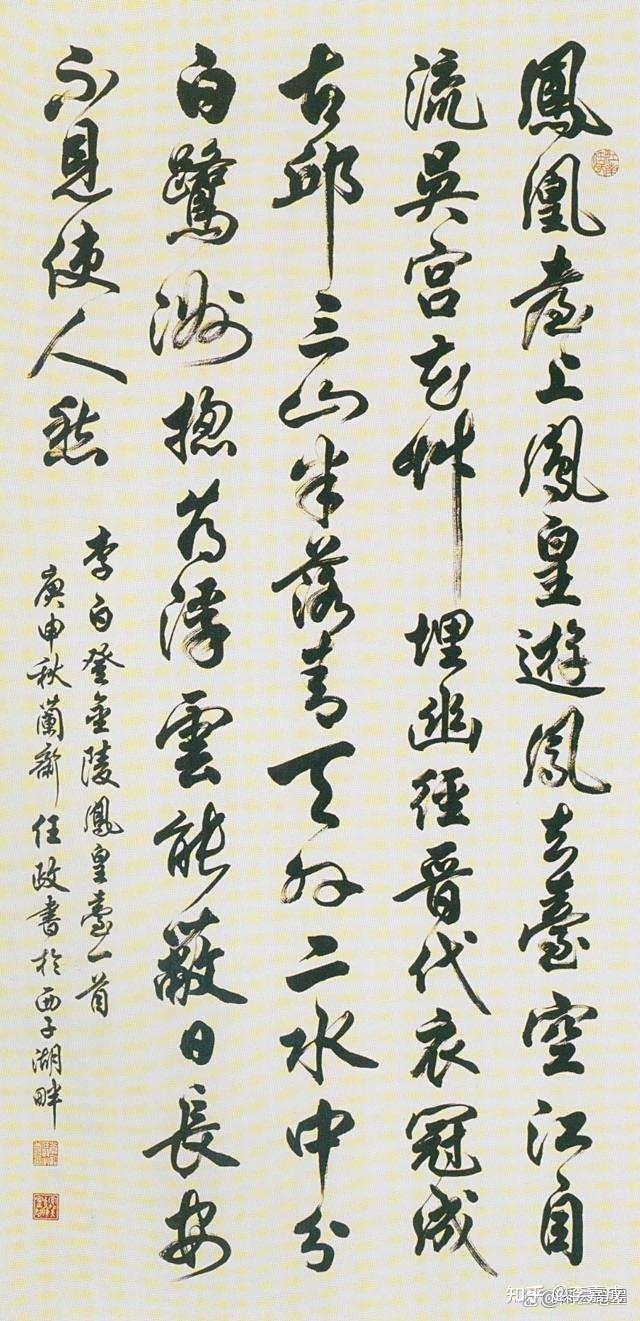 鳳凰臺上鳳皇遊鳳去臺空江自
流吳宮花艸埋幽徑晉代衣冠成
古邱三山半落青天外二水中分
白鷺洲揔為浮雲能蔽日長安
不見使人愁
李白登金陵鳳皇臺一首
庚申秋蘭齋任政書於西子湖畔
知乎